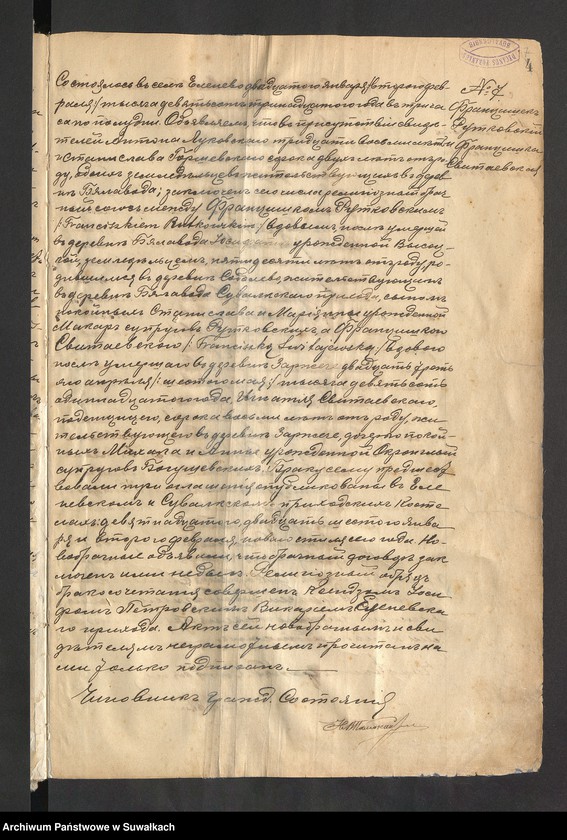 4
№ 7
Францишекъ
Рутковскій
и Францишка
Свитаевская
Состоялось въ селѣ Еленево двадцатого Января /второго фев-
раля/ тысяча девятьсотъ тринадцатого года въ три часа
по полудни. Объявляемъ, что въ присутствіи свидѣ-
телей Антона Луковскаго тридцати восьми лѣтъ
и Станислава сорока двухъ лѣтъ отъ ро-
ду, обоихъ земледѣльцевъ жительствующихъ въ дерев-
нѣ Бялавода; заключенъ сего числа религіозный брач-
ный союзъ между Францишкомъ Рутковскимъ
/:Franciszkiem Rutkowskim:/ вдовцомъ послѣ умершей
въ деревнѣ Бялавода урожденной Высоц-
кой, земледѣльцемъ, пятидесяти лѣтъ отъ роду, ро-
дившемся въ деревнѣ жительствующимъ
въ деревнѣ Бялавода Сувалкскаго прихода, сыномъ
покойныхъ Станислава и Маріи урожденной
Макаръ супруговъ Рутковскихъ, а Францишкою
Свитаевскою /:Franciszką Świtajewską:/ вдовою
послѣ умершаго въ деревнѣ двадцать
апрѣля тысяча девятьсотъ
одиннадцатого года Игнатія Свитаевскаго,
сорока восьми лѣтъ отъ роду, жи-
тельствующею въ деревнѣ дочерью покой-
ныхъ и Анны урожденной
супруговъ Богушевскихъ. Браку сему предшество-
вали три оглашенія опубликованы въ Еле-
невскомъ и Сувалкскомъ приходскихъ косте-
лахъ девятнадцатого, двадцать шестого Янва-
ря и второго февраля новаго стиля сего года. Но-
вобрачные объявили, что брачный договоръ зак-
люченъ ими небылъ. Религіозный обрядъ
бракосочетанія совершенъ Ксендзомъ Іоси-
фомъ Петровскимъ Викаремъ Еленевска-
го прихода. Актъ сей новобрачнымъ и сви-
дѣтелямъ неграмотнымъ прочитанъ на-
ми только подписанъ.
Чиновникъ гражд. Состоянія
Archiwum Państwowe w Suwałkach